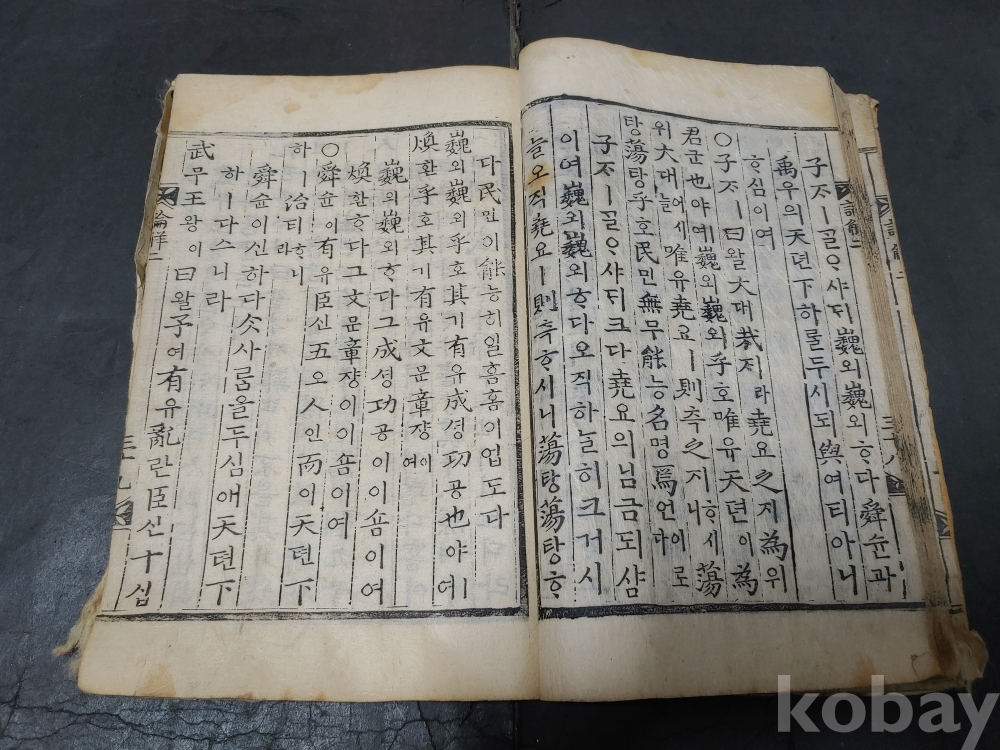 子ᄌᆞㅣᄀᆞᆯᄋᆞ샤ᄃᆡ巍외巍외ᄒᆞ다舜슌과
禹우의天텬下하룰두시되與여티아니
ᄒᆞ심이여
○子ᄌᆞㅣ曰왈大대哉ᄌᆡ라堯요之지為위
君군也야예巍외巍외乎호唯유天텬이為
위大대어늘唯유堯요ㅣ則측之지ᄒᆞ시니蕩
탕蕩탕乎호民민無무能능名명焉언이로다
子ᄌᆞㅣᄀᆞᆯᄋᆞ샤ᄃᆡ크다堯요의님금되샴
이여巍외巍외ᄒᆞ다오직하ᄂᆞᆯ히크거시
늘오직堯요ㅣ則측ᄒᆞ시니蕩탕蕩탕ᄒᆞ
다民민이能능히일홈홈이업도다
巍외巍외乎호其기有유成셩功공也야예
煥환乎호其기有유文문章쟝이여
巍외巍외ᄒᆞ다그成셩功공이이숌이여
煥환ᄒᆞ다그文문章쟝이이숌이여
○舜슌이有유臣신五오人인而이天텬下
하ㅣ治티ᄒᆞ니라
舜슌이신하다ᄉᆞᆺ사룸을두심애天텬下
하ㅣ다스니라
武무王왕이曰왈予여有유亂란臣신十십
三十九
kobay